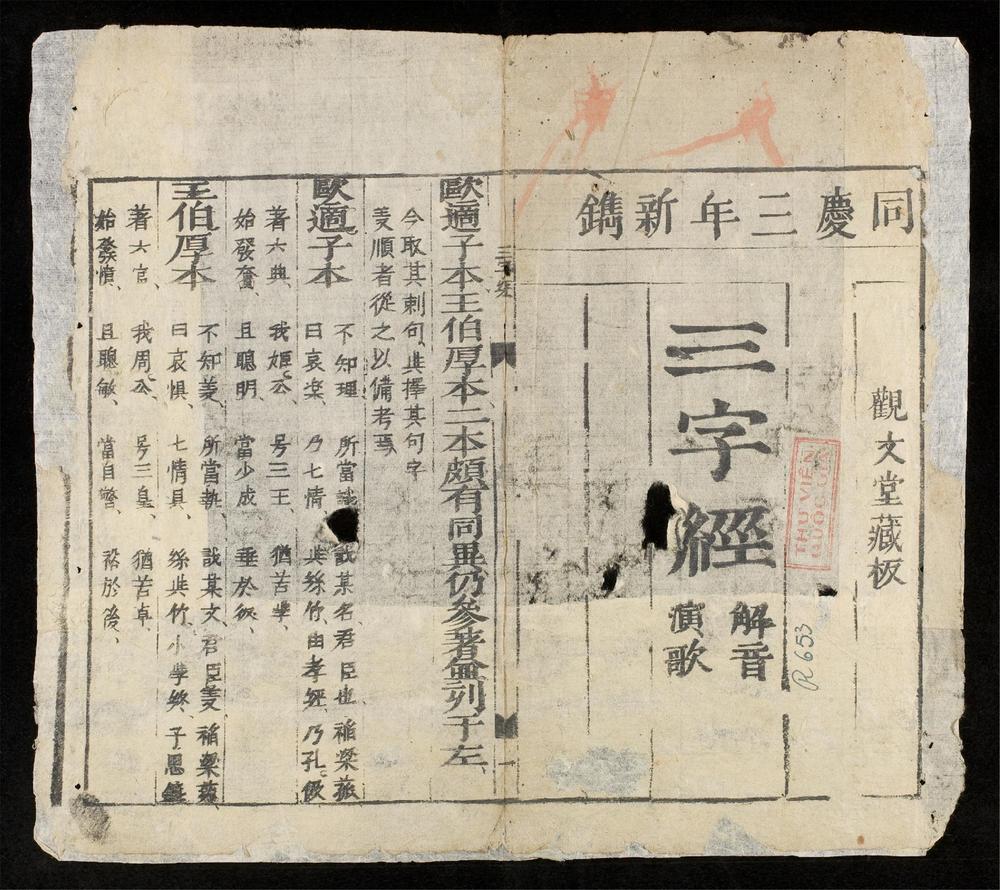 同慶三年新鐫
觀文堂藏板
三字經
解音
演歌
THƯ VIỆN
QUỐC GIA
R653
三字經
一
歐適子本王伯厚本二本頗有同異仍參著僉列于左、
今取其刺句、其擇其句字
義順者從之以備考焉
歐適子本
不知理、所當識、某名、君臣也、稲粱菽、
曰哀楽、乃七情、與絲竹、由孝經、乃孔伋
著六典、我姬公、号三王、猶苦學、
始發奮、且聰明、當少成、垂於後、
王伯厚本
不知義、所當執、識某文、君臣義、稲粱菽、
曰哀惧、七情具、絲與竹、小學終、子思
著六官、我周公、号三皇、猶苦卓、
始發憤、且聰敏、當自警、裕於後、